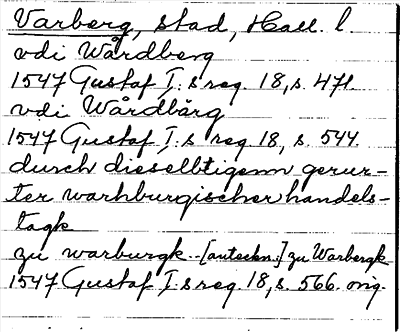 Varberg, stad, Hall. l.
vdi Wårdberg
1547 Gustaf I:s reg. 18, s. 471.
vdi Wårdbärg
1547 Gustaf I:s reg. 18, s. 544.
durch dieselbtigenn gerur-
ter warhburgischer handels-
tagk
zu warburgk - [anteckn.] zu Warbergk
1547 Gustaf I:s reg. 18, s. 566. orig.